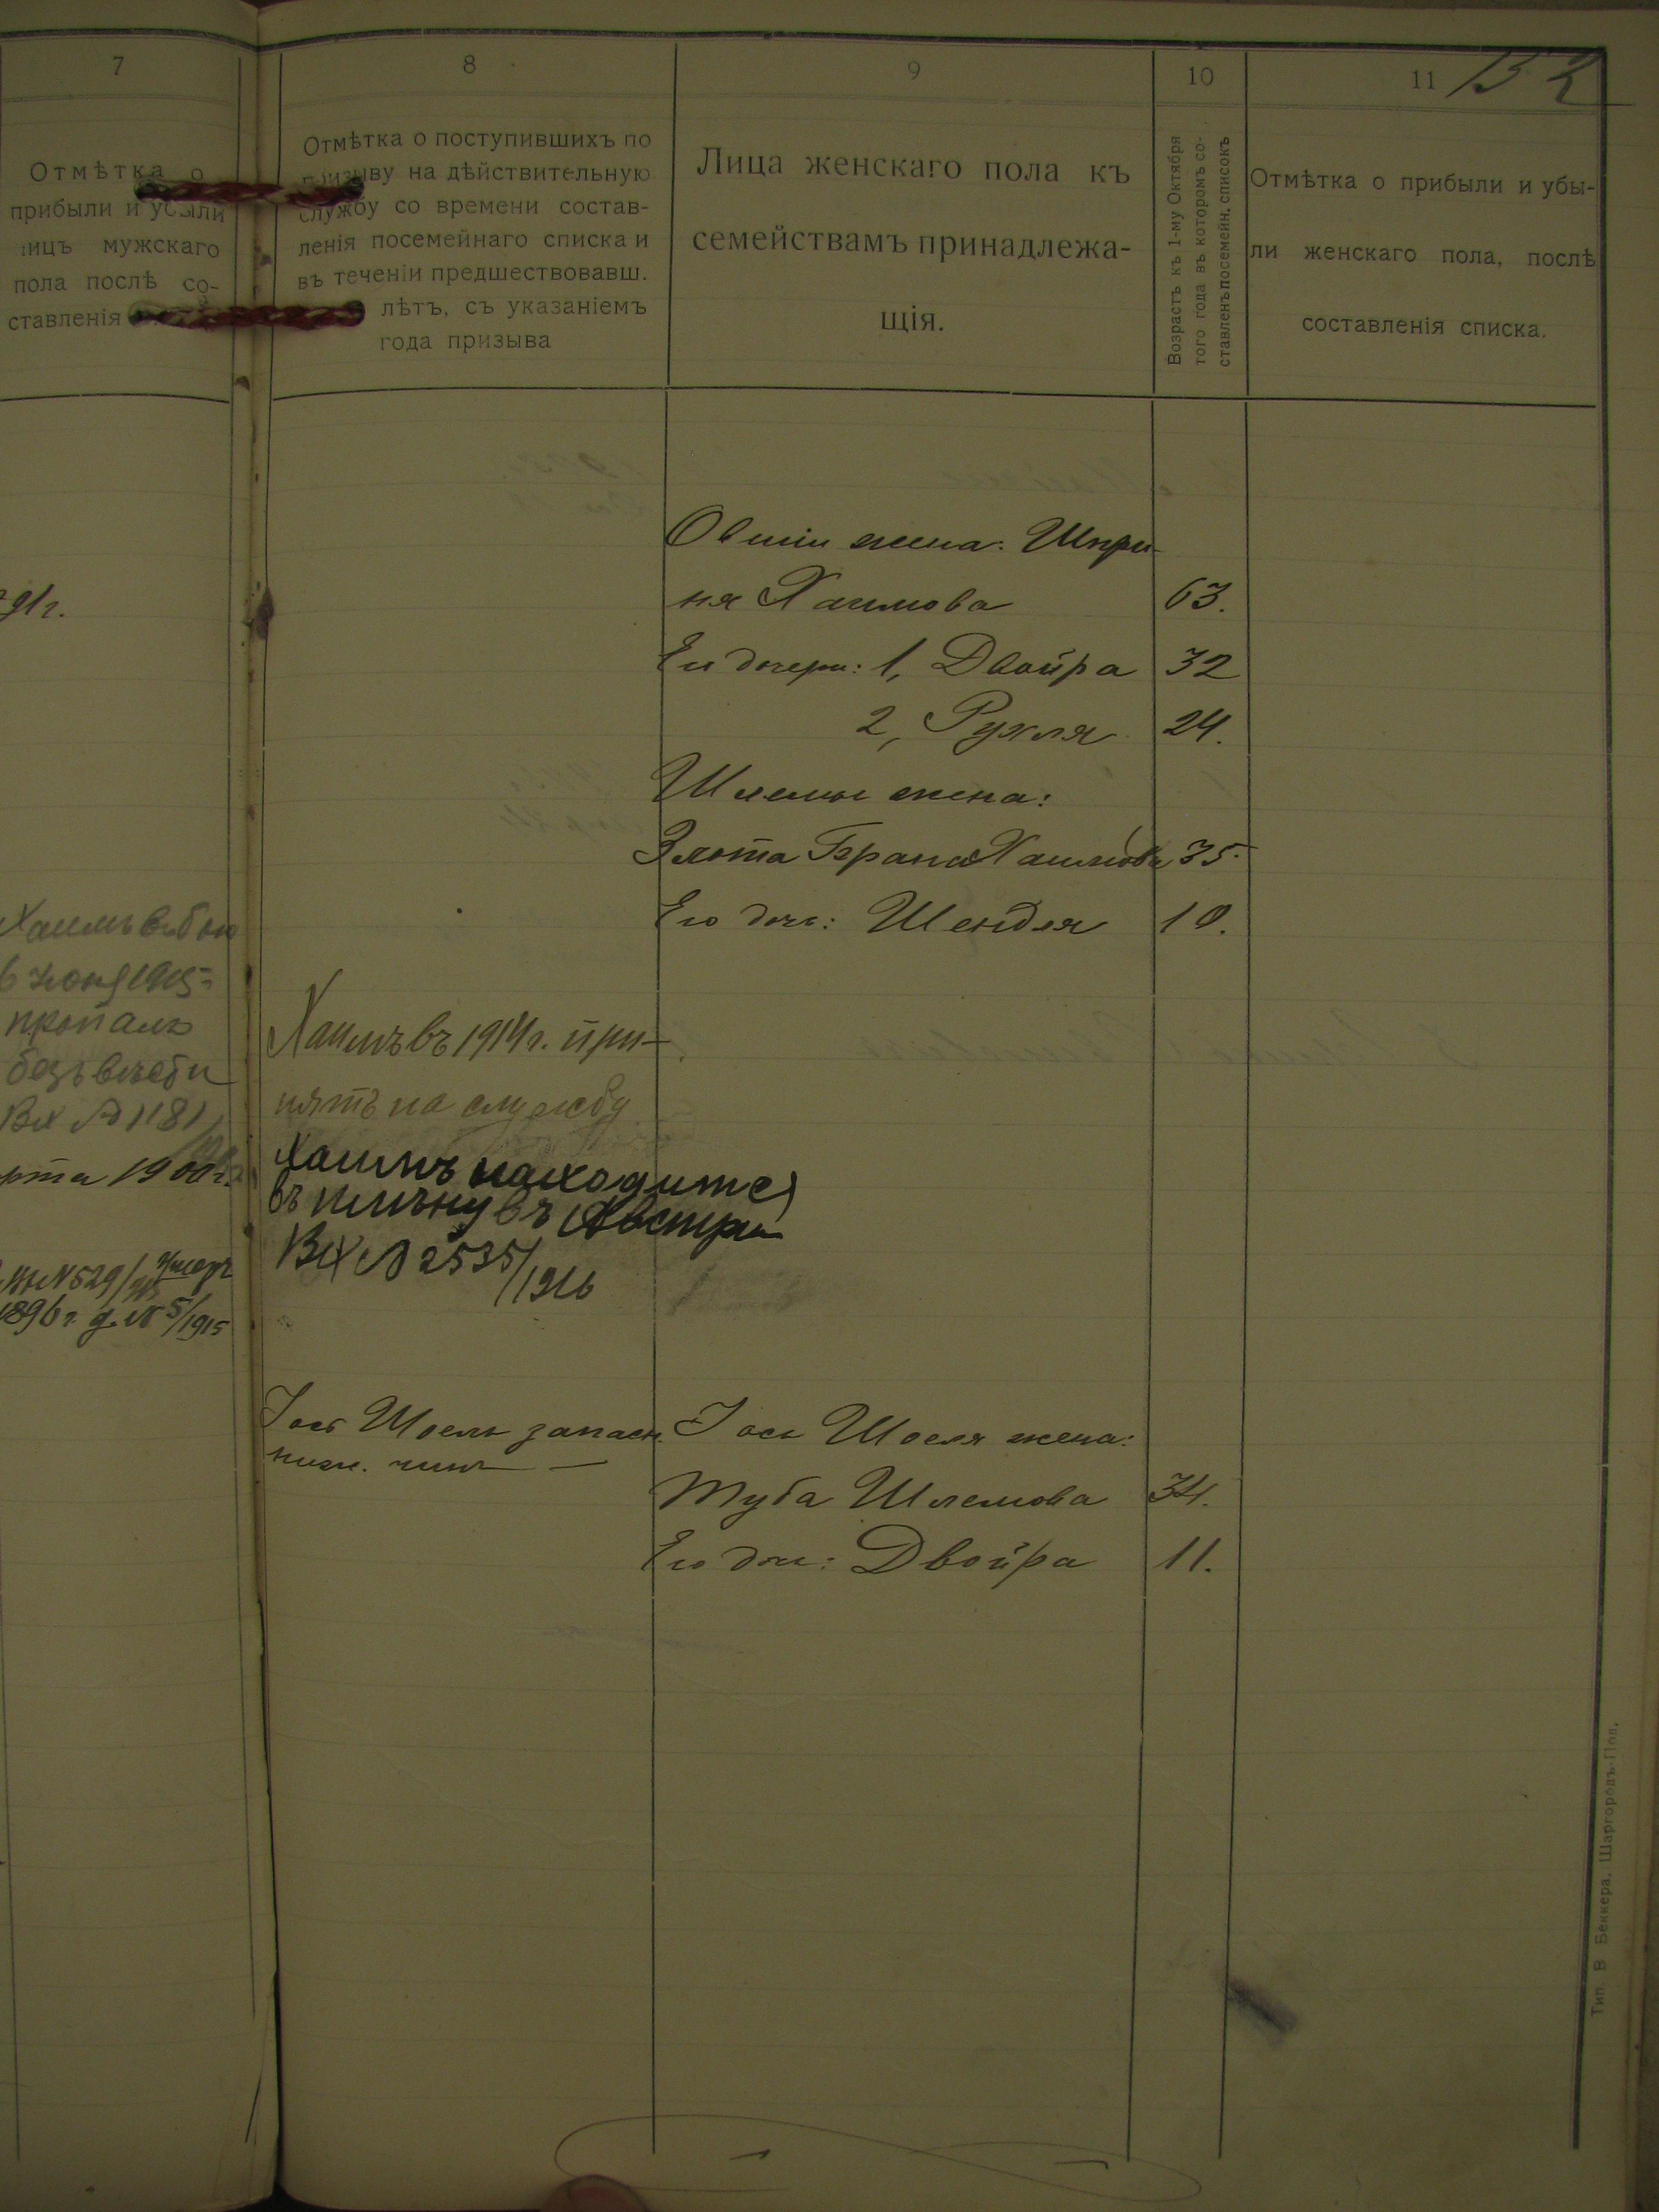 7
Отмѣтка о
прибыли и убыли
лицъ мужскаго
пола послѣ со-
ставленія
91г.
Хаимъ въ бою
6 Іюня 1915
пропалъ
безъ вѣсти
Вх № 1181
рта 1900г.
Вх № 529/ Умеръ
1896 г. д. № 5/1915
8
Отмѣтка о поступившихъ по
призыву на дѣйствительную
службу со времени состав-
ленія посемейнаго списка и
въ теченіи предшествовавш.
лѣтъ, съ указаніемъ
года призыва
Хаимъ въ 1914 г. при-
нятъ на службу
Хаимъ находится
въ плѣну въ Австріи
Вх № 2535/1916
Іось Шоель запасн.
нижн. чинъ —
9
Лица женскаго пола къ
семействамъ принадлежа-
щія.
Овшіи жена: Шпри-
ня Хаимова
Ею дочери: 1, Двойра
2, Рухля
Шлемы жена:
Злота Брана Хаимова
Его дочь: Шендля
Іось Шоеля жена:
Туба Шлемова
Его доч: Двойра
10
Возрастъ къ 1-му Октября
того года въ которомъ со-
ставленъ посемейн. списокъ
63.
32
24.
35.
10.
34.
11.
11
132
Отмѣтка о прибыли и убы-
ли женскаго пола, послѣ
составленія списка.
Тип. В Беккера, Шаргородъ-Под.